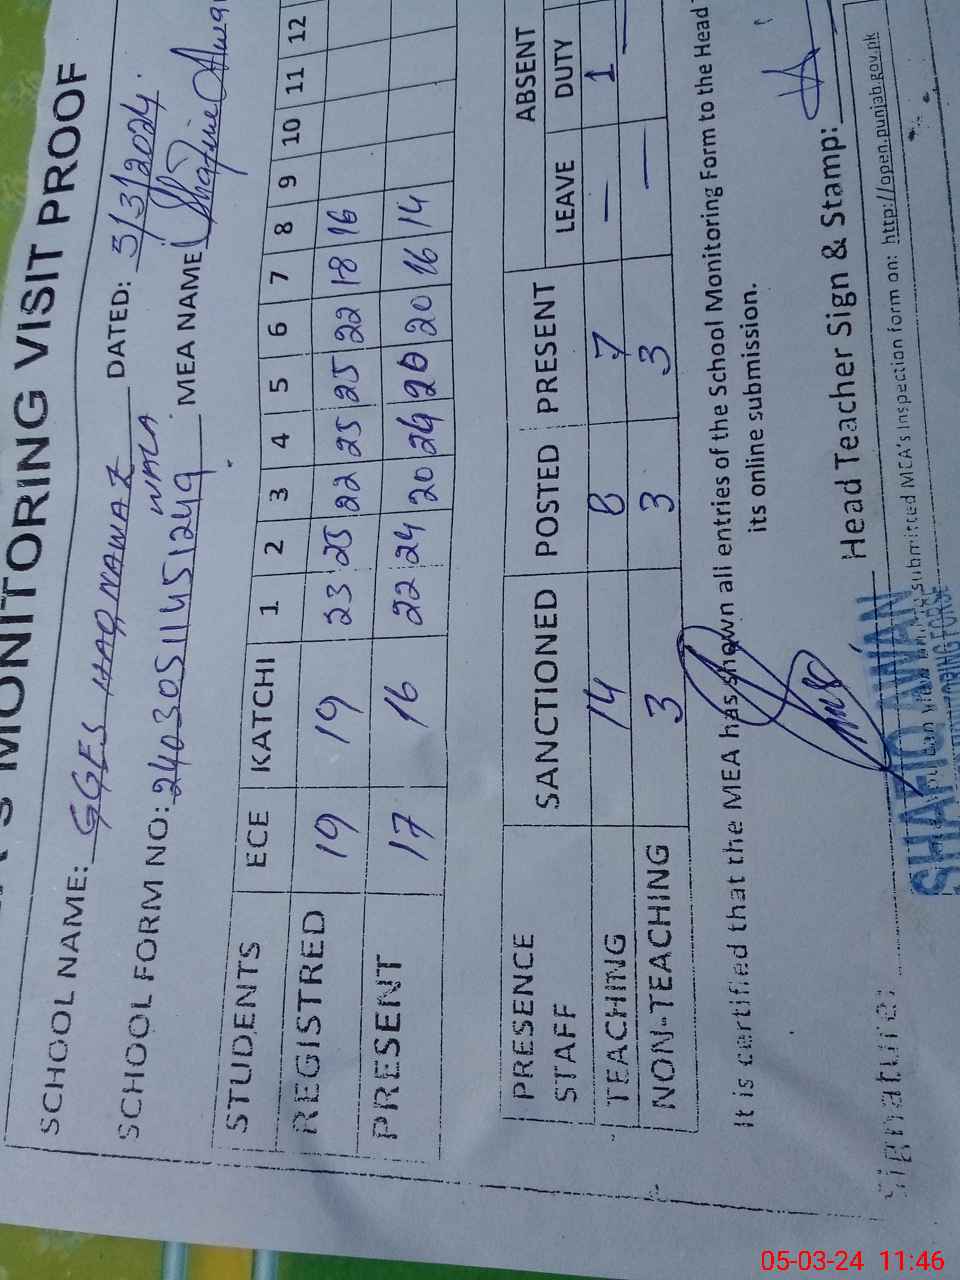 MONITORING VISIT PROOF
SCHOOL NAME: GGES HAQ NAWAZ WALA DATED: 5/3/2024.
SCHOOL FORM NO: 24030511451249 MEA NAME Shafiq Awan
STUDENTS ECE KATCHI 1 2 3 4 5 6 7 8 9 10 11 12
REGISTRED 19 19 23 25 22 25 25 22 18 16
PRESENT 17 16 22 24 20 24 20 20 16 14
PRESENCE SANCTIONED POSTED PRESENT ABSENT
STAFF LEAVE DUTY
TEACHING 14 8 7 — 1
NON-TEACHING 3 3 3 — —
It is certified that the MEA has shown all entries of the School Monitoring Form to the Head
its online submission.
Signature: Head Teacher Sign & Stamp:
SHAFIQ AWAN
MONITORING FORSE
submitted MEA's Inspection form on: http://open.punjab.gov.pk
05-03-24 11:46